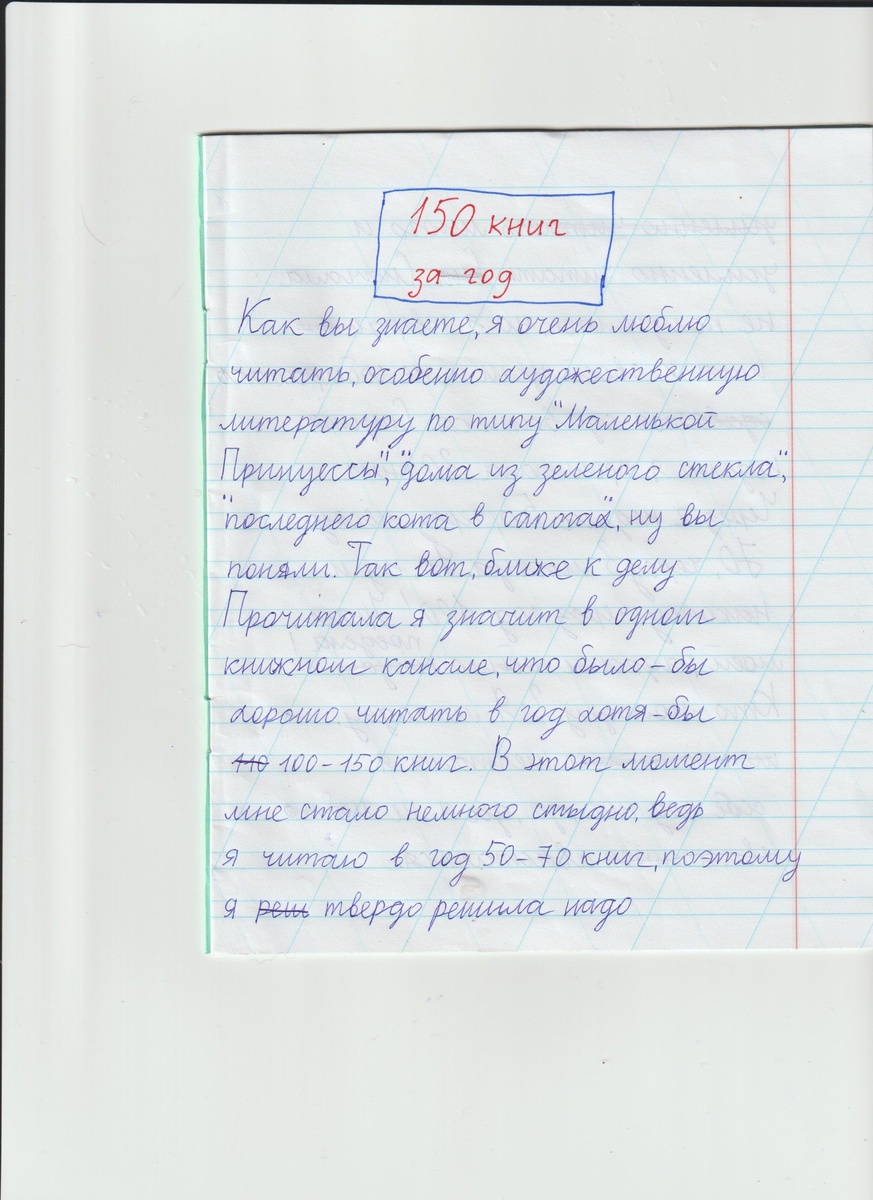 150 книг
за год
Как вы знаете, я очень люблю
читать, особенно художественную
литературу по типу "Маленькой
Принцессы", "дома из зеленого стекла",
"последнего кота в сапогах", ну вы
поняли. Так вот, ближе к делу
Прочитала я значит в одном
книжном канале, что было-бы
хорошо читать в год хотя-бы
110 100-150 книг. В этот момент
мне стало немного стыдно, ведь
я читаю в год 50-70 книг, поэтому
я реш твердо решила надо